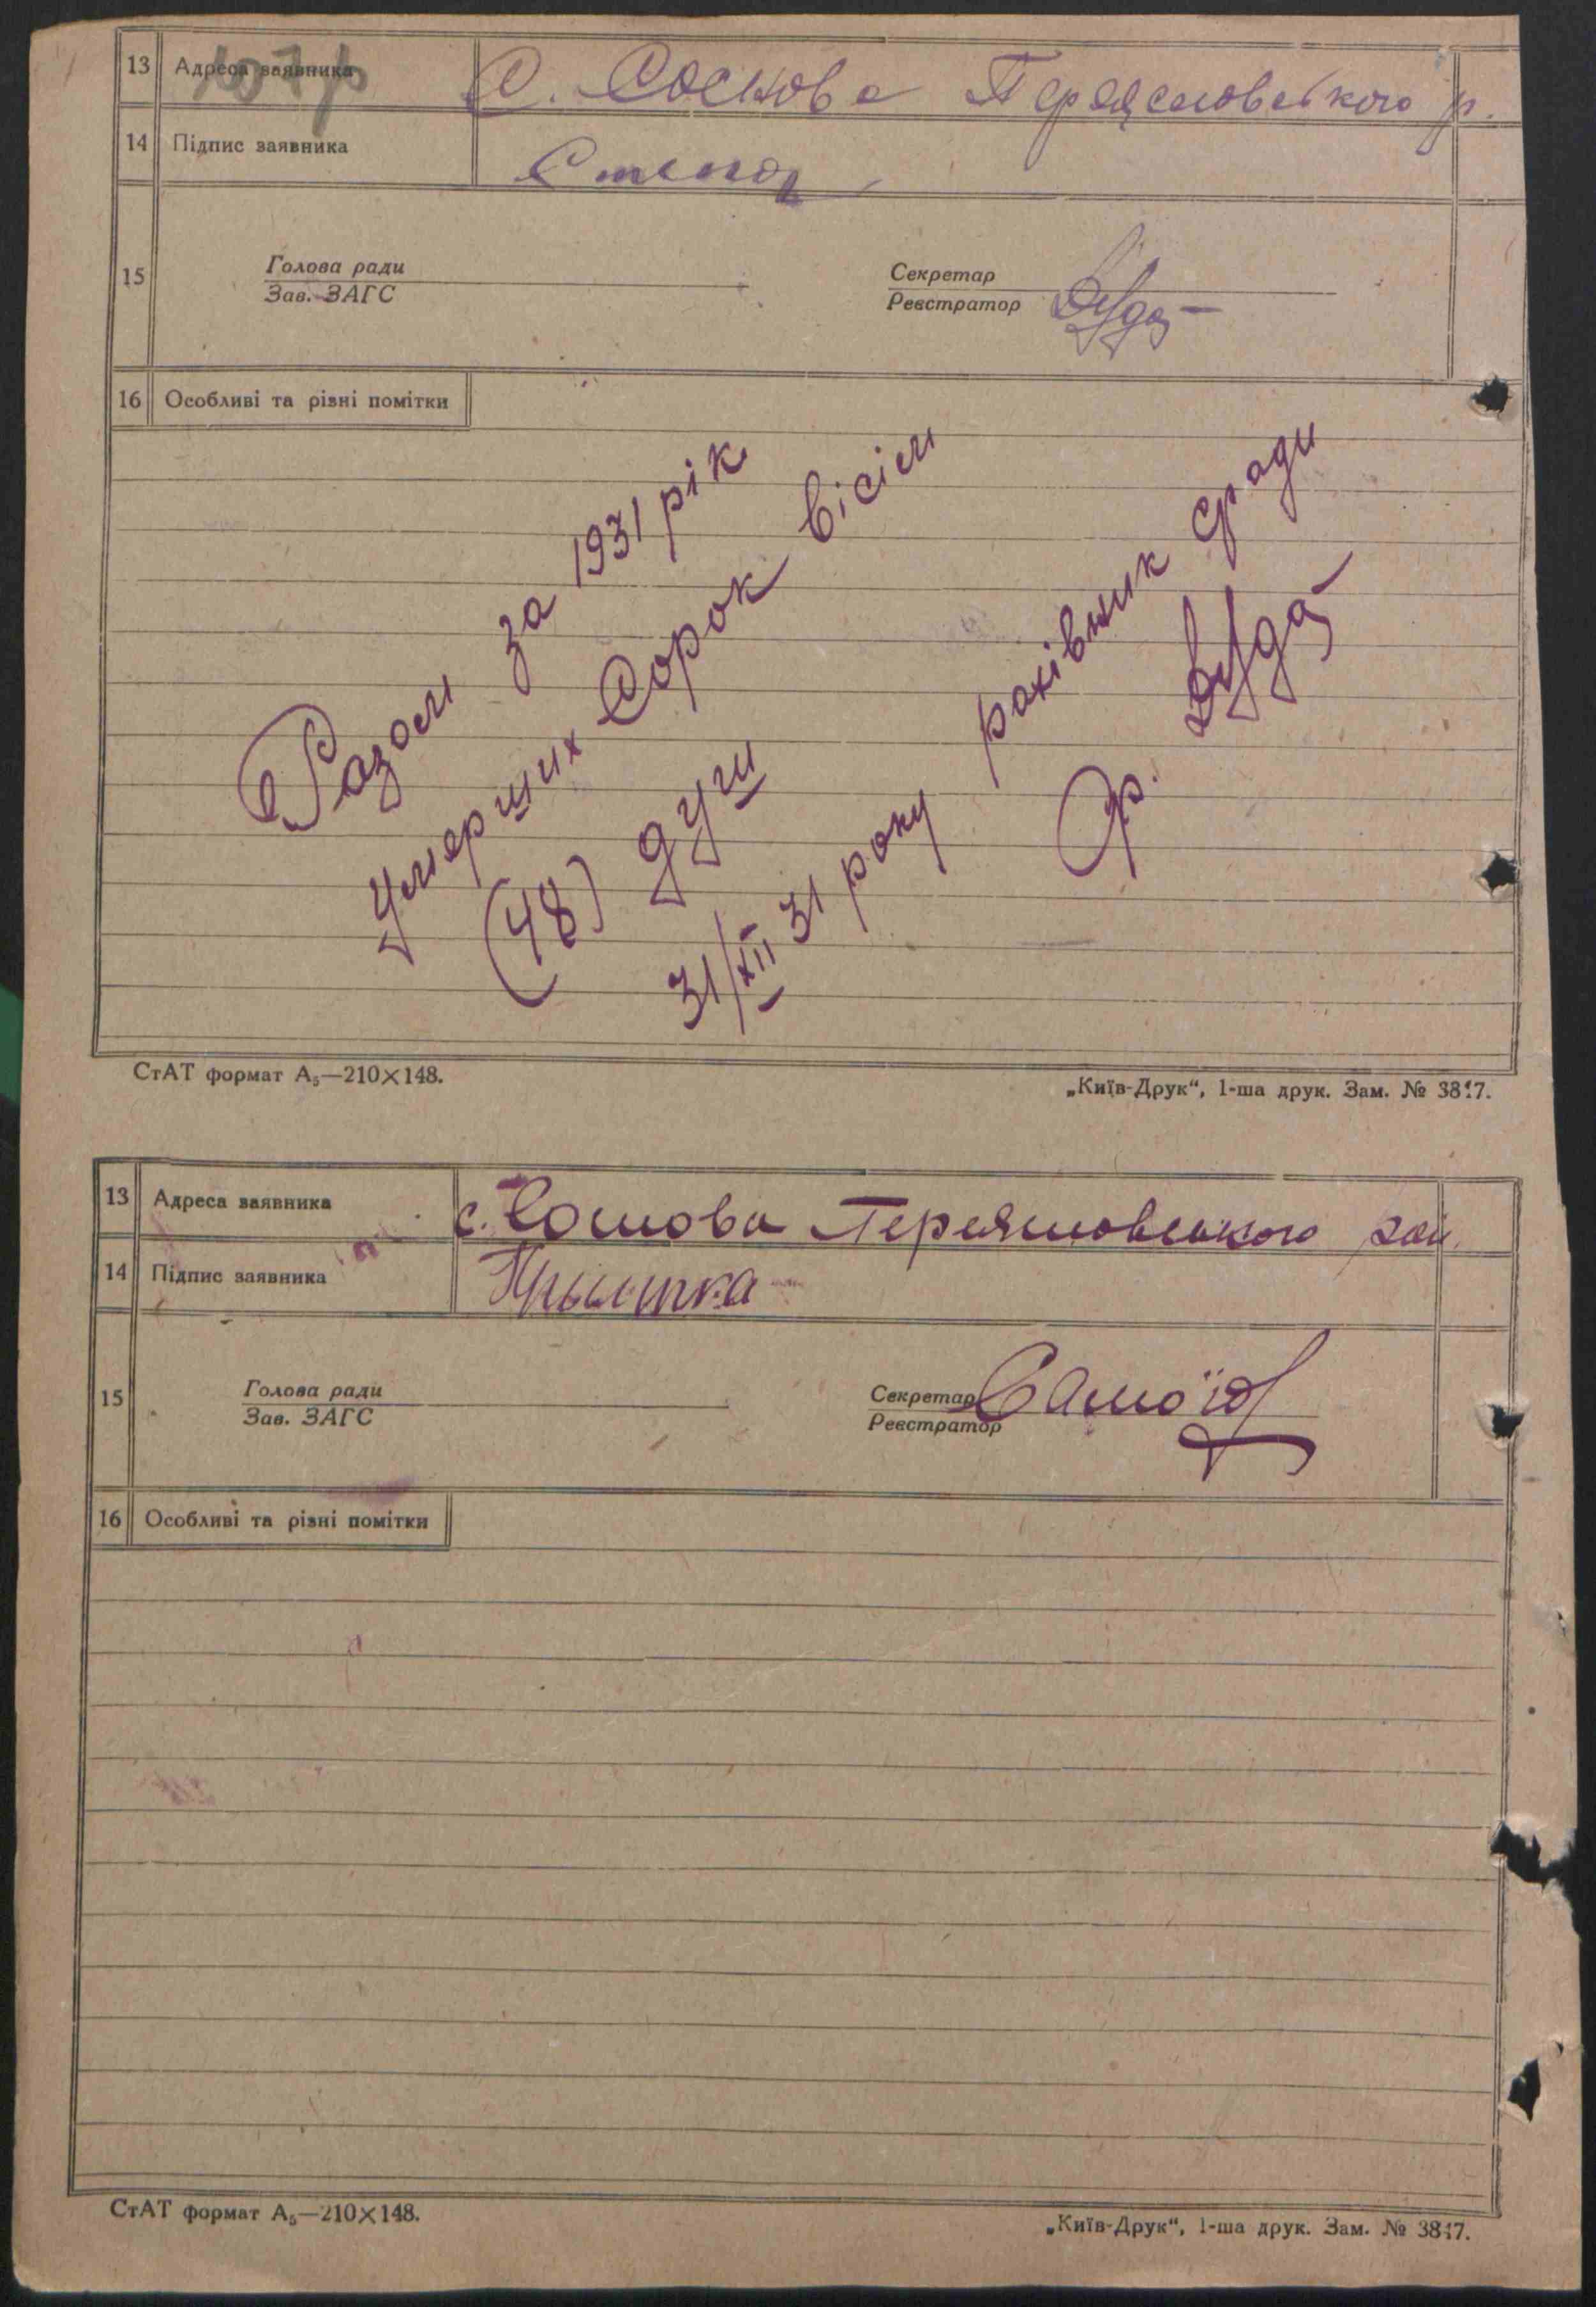 107р
13 Адреса заявника С. Соснова Переяславського р.
14 Підпис заявника
15 Голова ради Секретар
Зав. ЗАГС Реєстратор
16 Особливі та різні помітки
Разом за 1931 рік
Умерших Сорок вісім
(48) душ
31/XII 31 року рахівник с/ради
СтАТ формат А₅—210×148.
„Київ-Друк“, 1-ша друк. Зам. № 3817.
13 Адреса заявника с. Соснова Переяславського рай.
14 Підпис заявника
15 Голова ради Секретар Самоїд
Зав. ЗАГС Реєстратор
16 Особливі та різні помітки
СтАТ формат А₅—210×148.
„Київ-Друк“, 1-ша друк. Зам. № 3817.